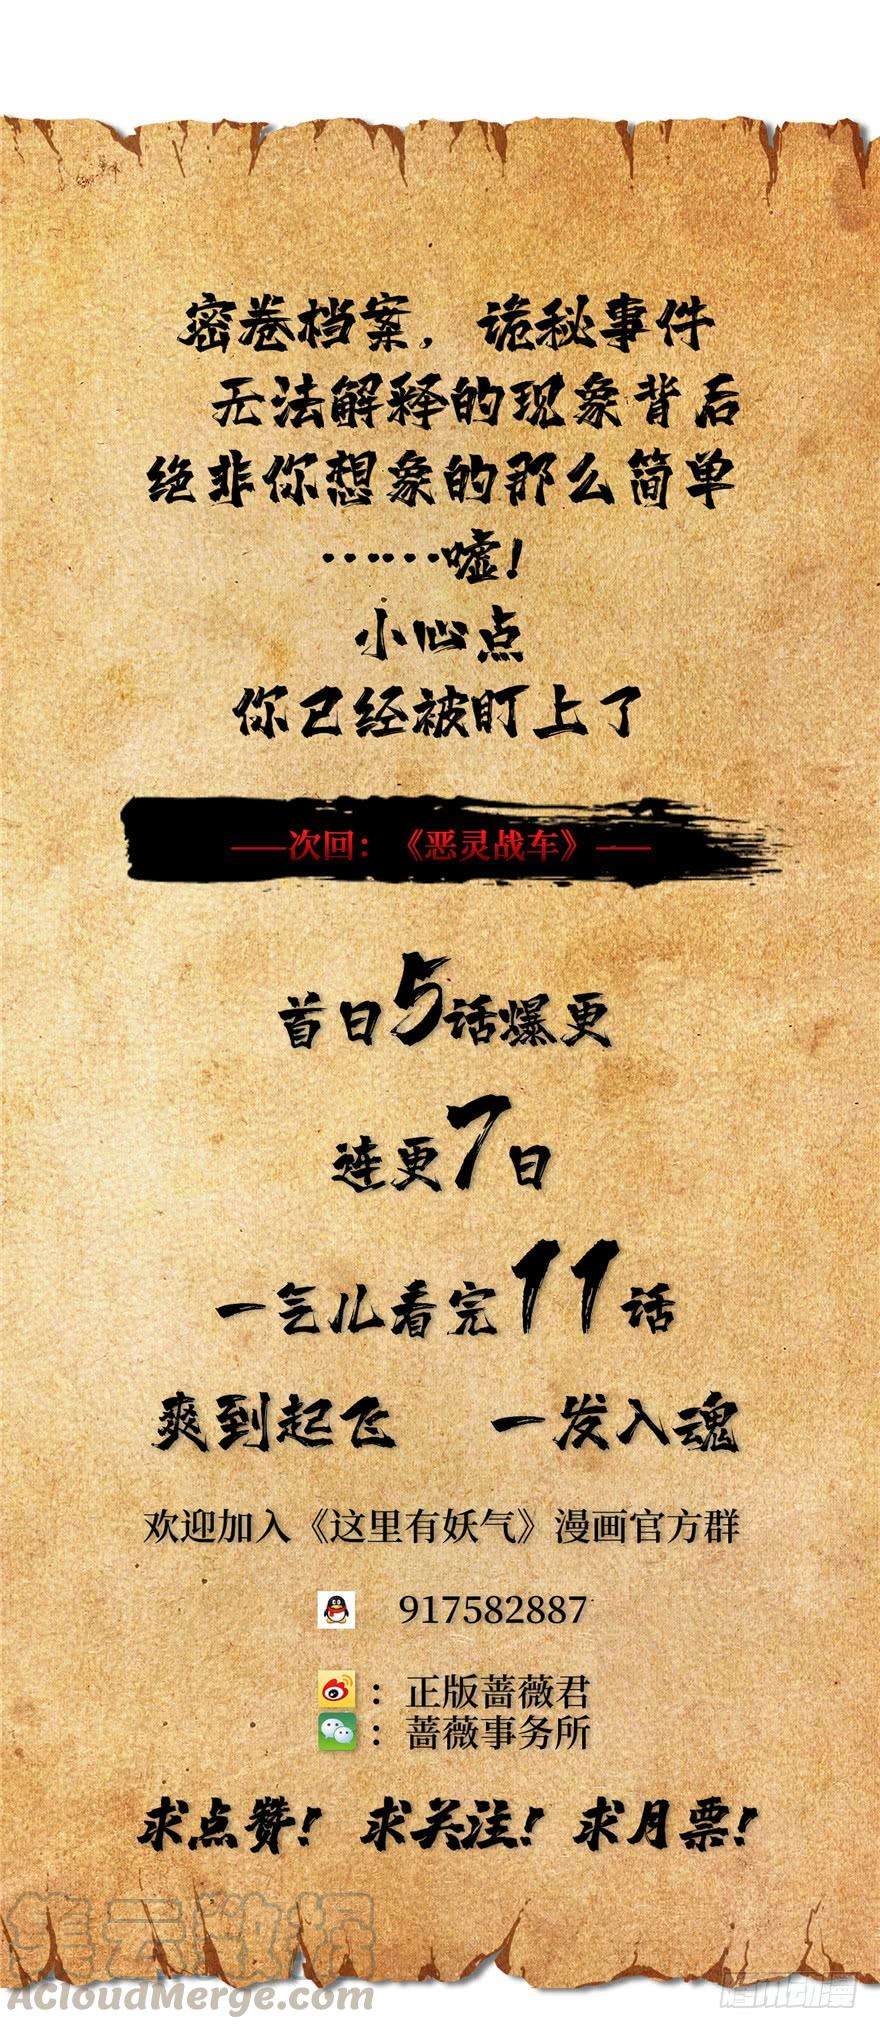 密卷档案，诡秘事件
无法解释的现象背后
绝非你想象的那么简单
……嘘！
小心点
你已经被盯上了
——次回：《恶灵战车》——
首日5话爆更
连更7日
一气儿看完11话
爽到起飞 一发入魂
欢迎加入《这里有妖气》漫画官方群
917582887
：正版蔷薇君
：蔷薇事务所
求点赞！求关注！求月票！
笔云数据
ACloudMerge.com